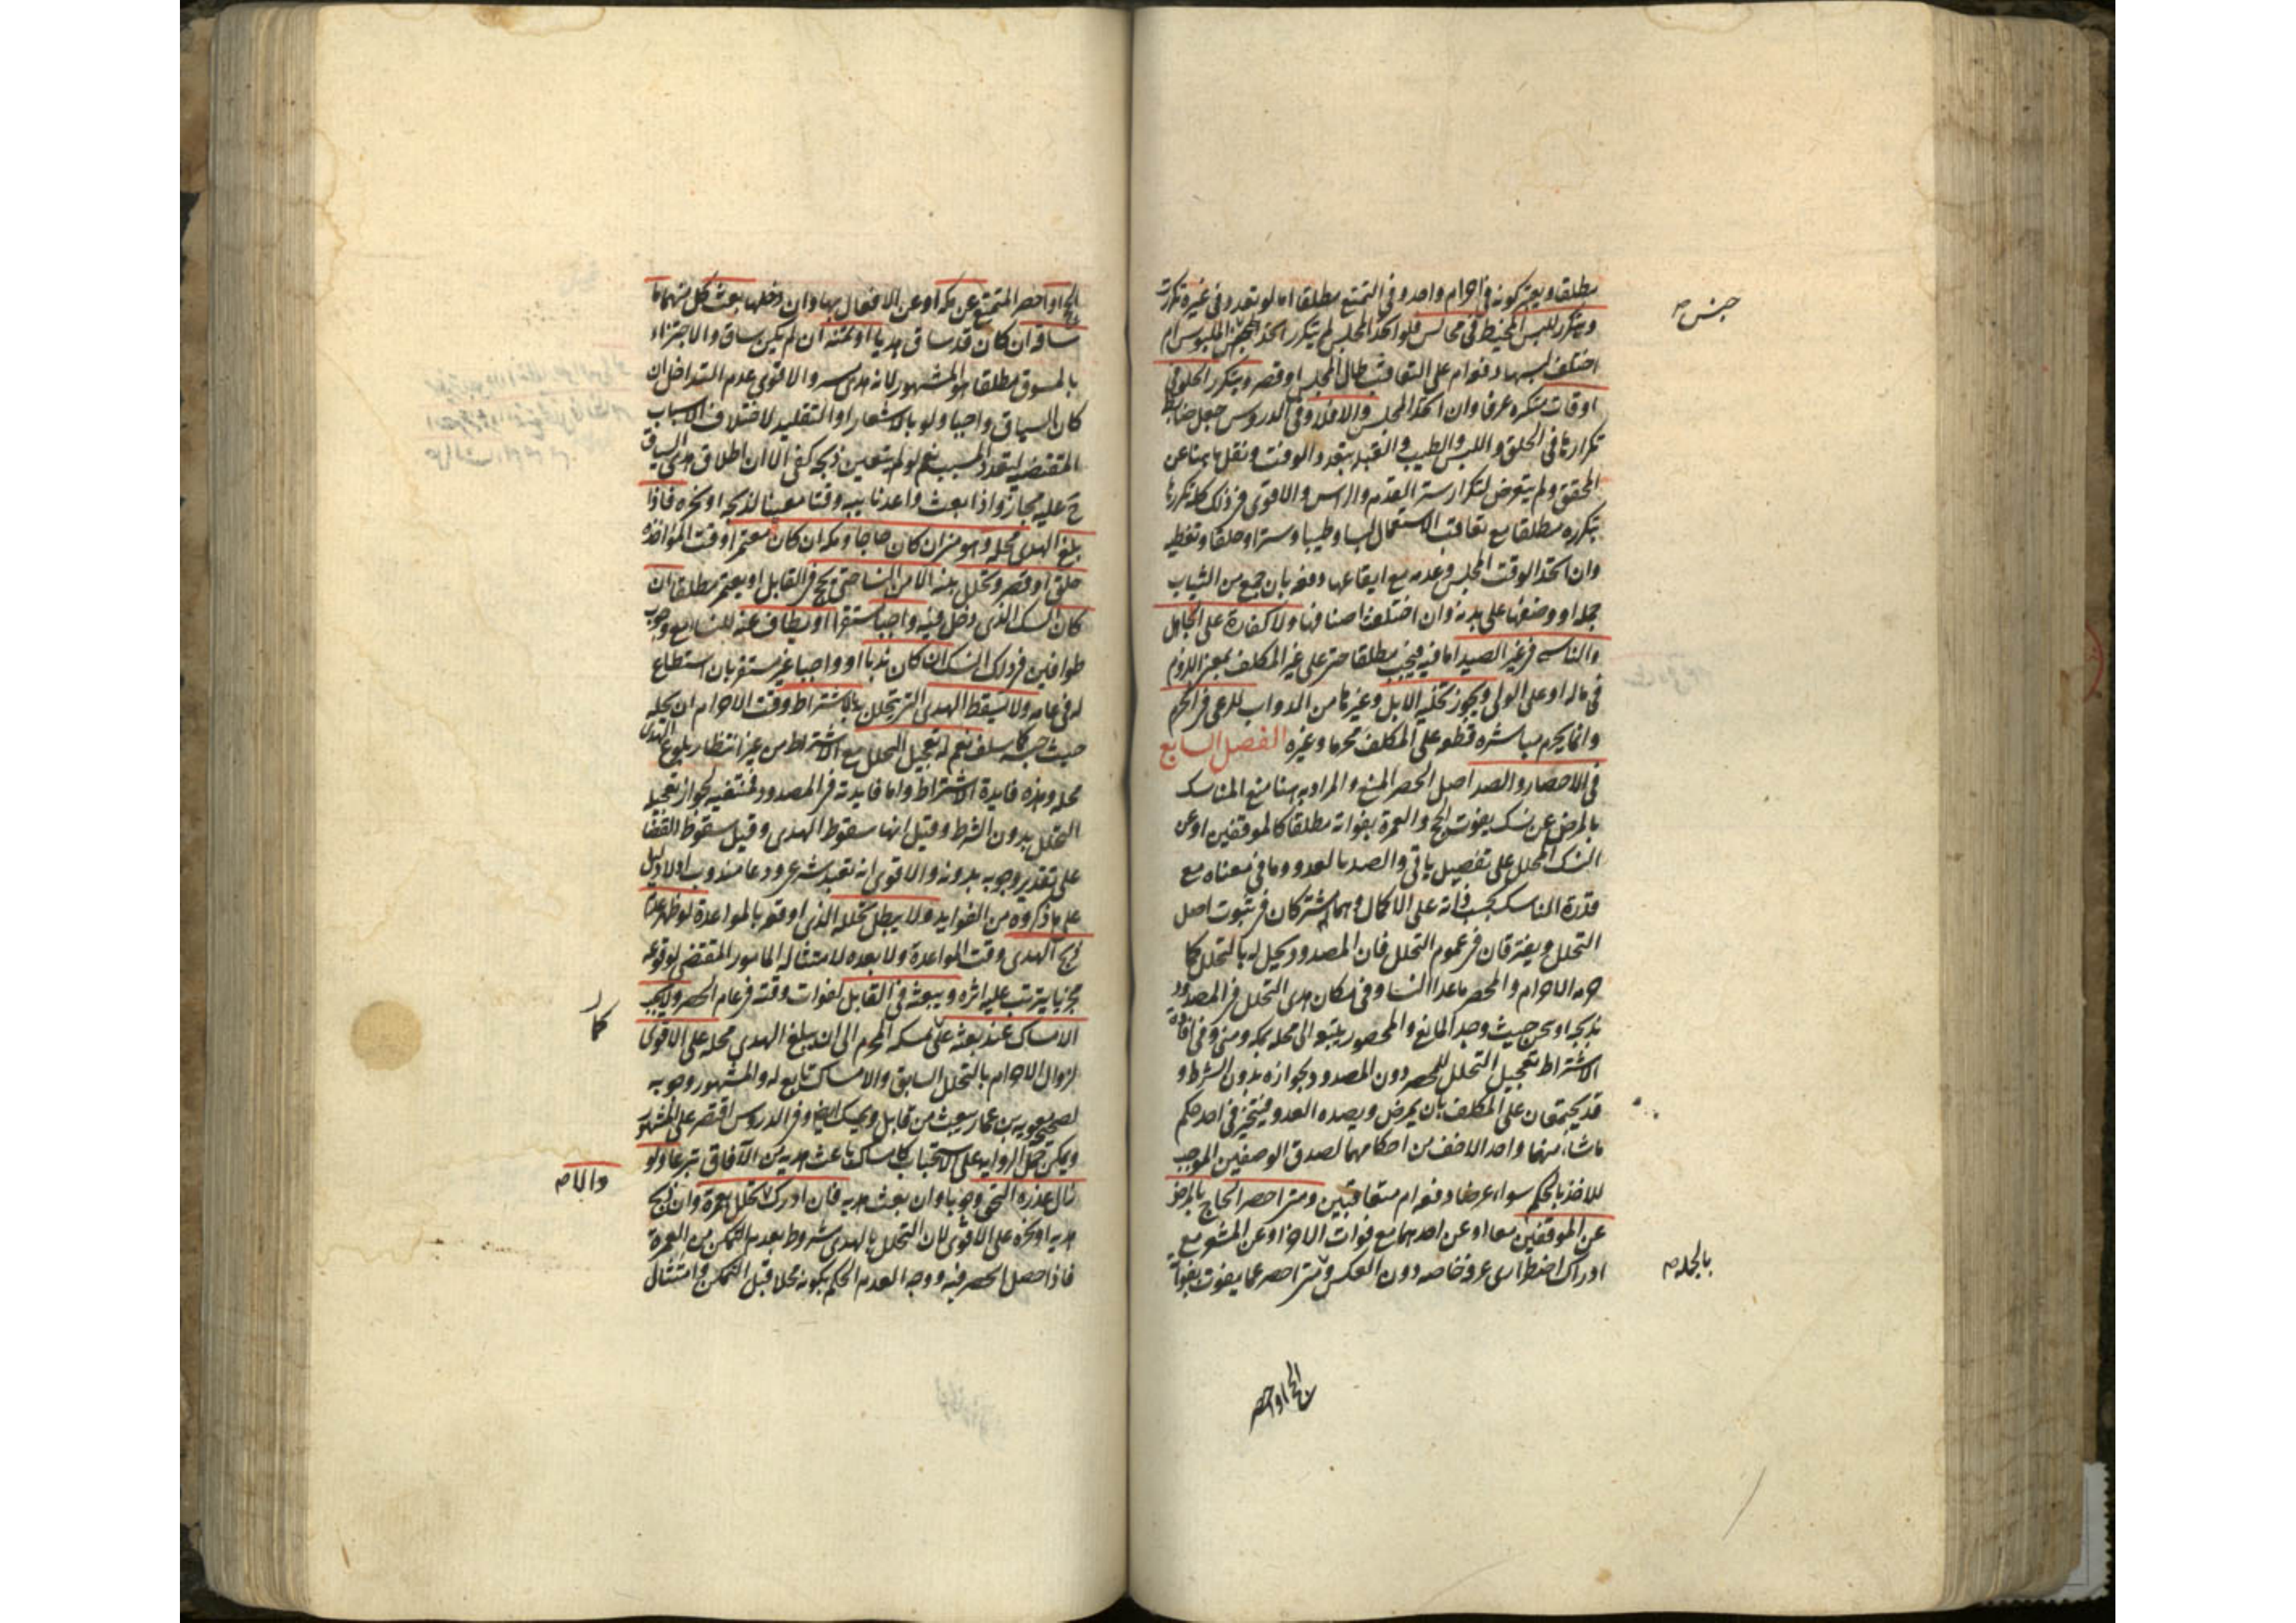 مطلقا ويعتبر كونه في احرام واحد وفي التمتع مطلقا اما لو تعدد في غيره تكررت
ويتكرر للبس المخيط في مجالس فلو اتحد المجلس لم يتكرر اتحد جنس الملبوس ام
اختلف لبسها دفعة ام على التعاقب طال المجلس او قصر ويتكرر الحلق في
اوقات متكثره عرفا وان اتحد المجلس والا فلا وفي الدروس جعل ضابط
تكرارها في الحلق واللبس والطيب والقبله بتعدد الوقت ونقل ما هنا عن
المحقق ولم يتعرض لتكرار ستر القدم والراس والاقوى في ذلك كله تكررها
بتكرره مطلقا مع تعاقب الاستعمال لبسا وطيبا وسترا وحلقا وتغطيه
وان اتحد الوقت المجلس وعدمه مع ايقاعها دفعه بان جمع من الثياب
جمله ووضعها على بدنه وان اختلفت اصنافها ولا كفارة على الجاهل
والناسي في غير الصيد اما فيه فيجب مطلقا حتى على غير المكلف بمعنى اللزوم
في ماله او على الولي ويجوز تخليه الابل وغيرها من الدواب للرعي في الحرم
وانما يحرم مباشره قطعه على المكلف محرما وغيره الفصل السابع
في الاحصار والصد اصل الحصر المنع والمراد به هنا منع الناسك
بالمرض عن نسك يفوت الحج والعمرة بفواته مطلقا كالموقفين او عن
النسك المحلل على تفصيل ياتي والصد بالعدو وما في معناه مع
قدرة الناسك بحسب ذاته على الاكمال وهما يشتركان في ثبوت اصل
التحلل ويفترقان في عموم التحلل فان المصدود يحل له بالتحلل كلما
حرمه الاحرام والمحصر ما عدا النسا وفي مكان هدي التحلل فالمصدود
يذبحه او ينحره حيث وجد المانع والمحصور يبعثه الى محله بمكه ومنى وفي افادة
الاشتراط تعجيل التحلل للمحصر دون المصدود لجوازه بدون الشرط و
قد يجتمعان على المكلف بان يمرض ويصده العدو فيتخير في اخذ حكم
ما شاء منهما واخذ الاخف من احكامهما لصدق الوصفين الموجب
للاخذ بالحكم سواء عرضا دفعه ام متعاقبين ومتى احصر الحاج بالمرض
عن الموقفين معا او عن احدهما مع فوات الاخر او عن المشعر مع
ادراك اضطراري عرفه خاصه دون العكس ومتى احصر عما يفوت بفواته
جنس صح
بالجمله صح
الحج او احصر
الحج او احصر المتمتع عن مكه او عن الافعال بها وان دخلها بعث كل منهما ما
ساقه ان كان قد ساق هديا او ثمنه ان لم يكن ساق والاجتزاء
بالمسوق مطلقا هو المشهور لانه هدي مستيسر والاقوى عدم التداخل ان
كان السياق واجبا ولو بالاشعار او التقليد لاختلاف الاسباب
المقتضيه لتعدد المسبب نعم لو لم يتعين ذبحه كفى الا ان اطلاق هدي السياق
ح عليه مجاز واذا بعث واعد نايبه وقتا معينا لذبحه او نحره فاذا
بلغ الهدي محله وهو منى ان كان حاجا ومكه ان كان معتمرا ووقت المواعدة
حلق او قصر وتحلل بنيه الا من النسا حتى يحج في القابل او يعتمر مطلقا ان
كان النسك الذي دخل فيه واجبا مستقرا او يطاف عنه للنسا مع وجوب
طوافهن في ذلك النسك ان كان ندبا او واجبا غير مستقر بان استطاع
له في عامه ولا يسقط الهدي الذي يتحلل به بالاشتراط وقت الاحرام ان يحله
حيث حبسه كما سلف نعم له تعجيل التحلل مع الاشتراط من غير انتظار بلوغ الهدي
محله وهذه فايدة الاشتراط واما فايدته في المصدود فمنتفيه لجواز تعجيله
التحلل بدون الشرط وقيل انها سقوط الهدي وقيل سقوط القضا
على تقدير وجوبه بدونه والاقوى انه تعبد شرعي ودعا مندوب اذ لا دليل
على ما ذكروه من الفوايد ولا يبطل تحلله الذي اوقعه بالمواعدة لو ظهر عدم
ذبح الهدي وقت المواعدة ولا بعده لامتثاله المامور المقتضي لوقوعه
مجزيا يترتب عليه اثره ويبعثه في القابل لفوات وقته في عام الحصر ولا يجب
الامساك عند بعثه عما يمسكه المحرم الى ان يبلغ الهدي محله على الاقوى
لزوال الاحرام بالتحلل السابق والامساك تابع له والمشهور وجوبه
لصحيحه معويه بن عمار يبعث من قابل ويمسك ايض وفي الدروس اقتصر على المشهور
ويمكن حمل الروايه على الاستحباب كامساك باعث هديه من الآفاق تبرعا ولو
زال عذره التحق وجوبا وان بعث هديه فان ادرك والا تحلل بعمرة وان ذبح
هديه او نحره على الاقوى لان التحلل بالهدي مشروط بعدم التمكن من العمرة
فاذا حصل انحصر فيه ووجه العدم الحكم بكونه محلا قبل التمكن وامتثال
والا صح